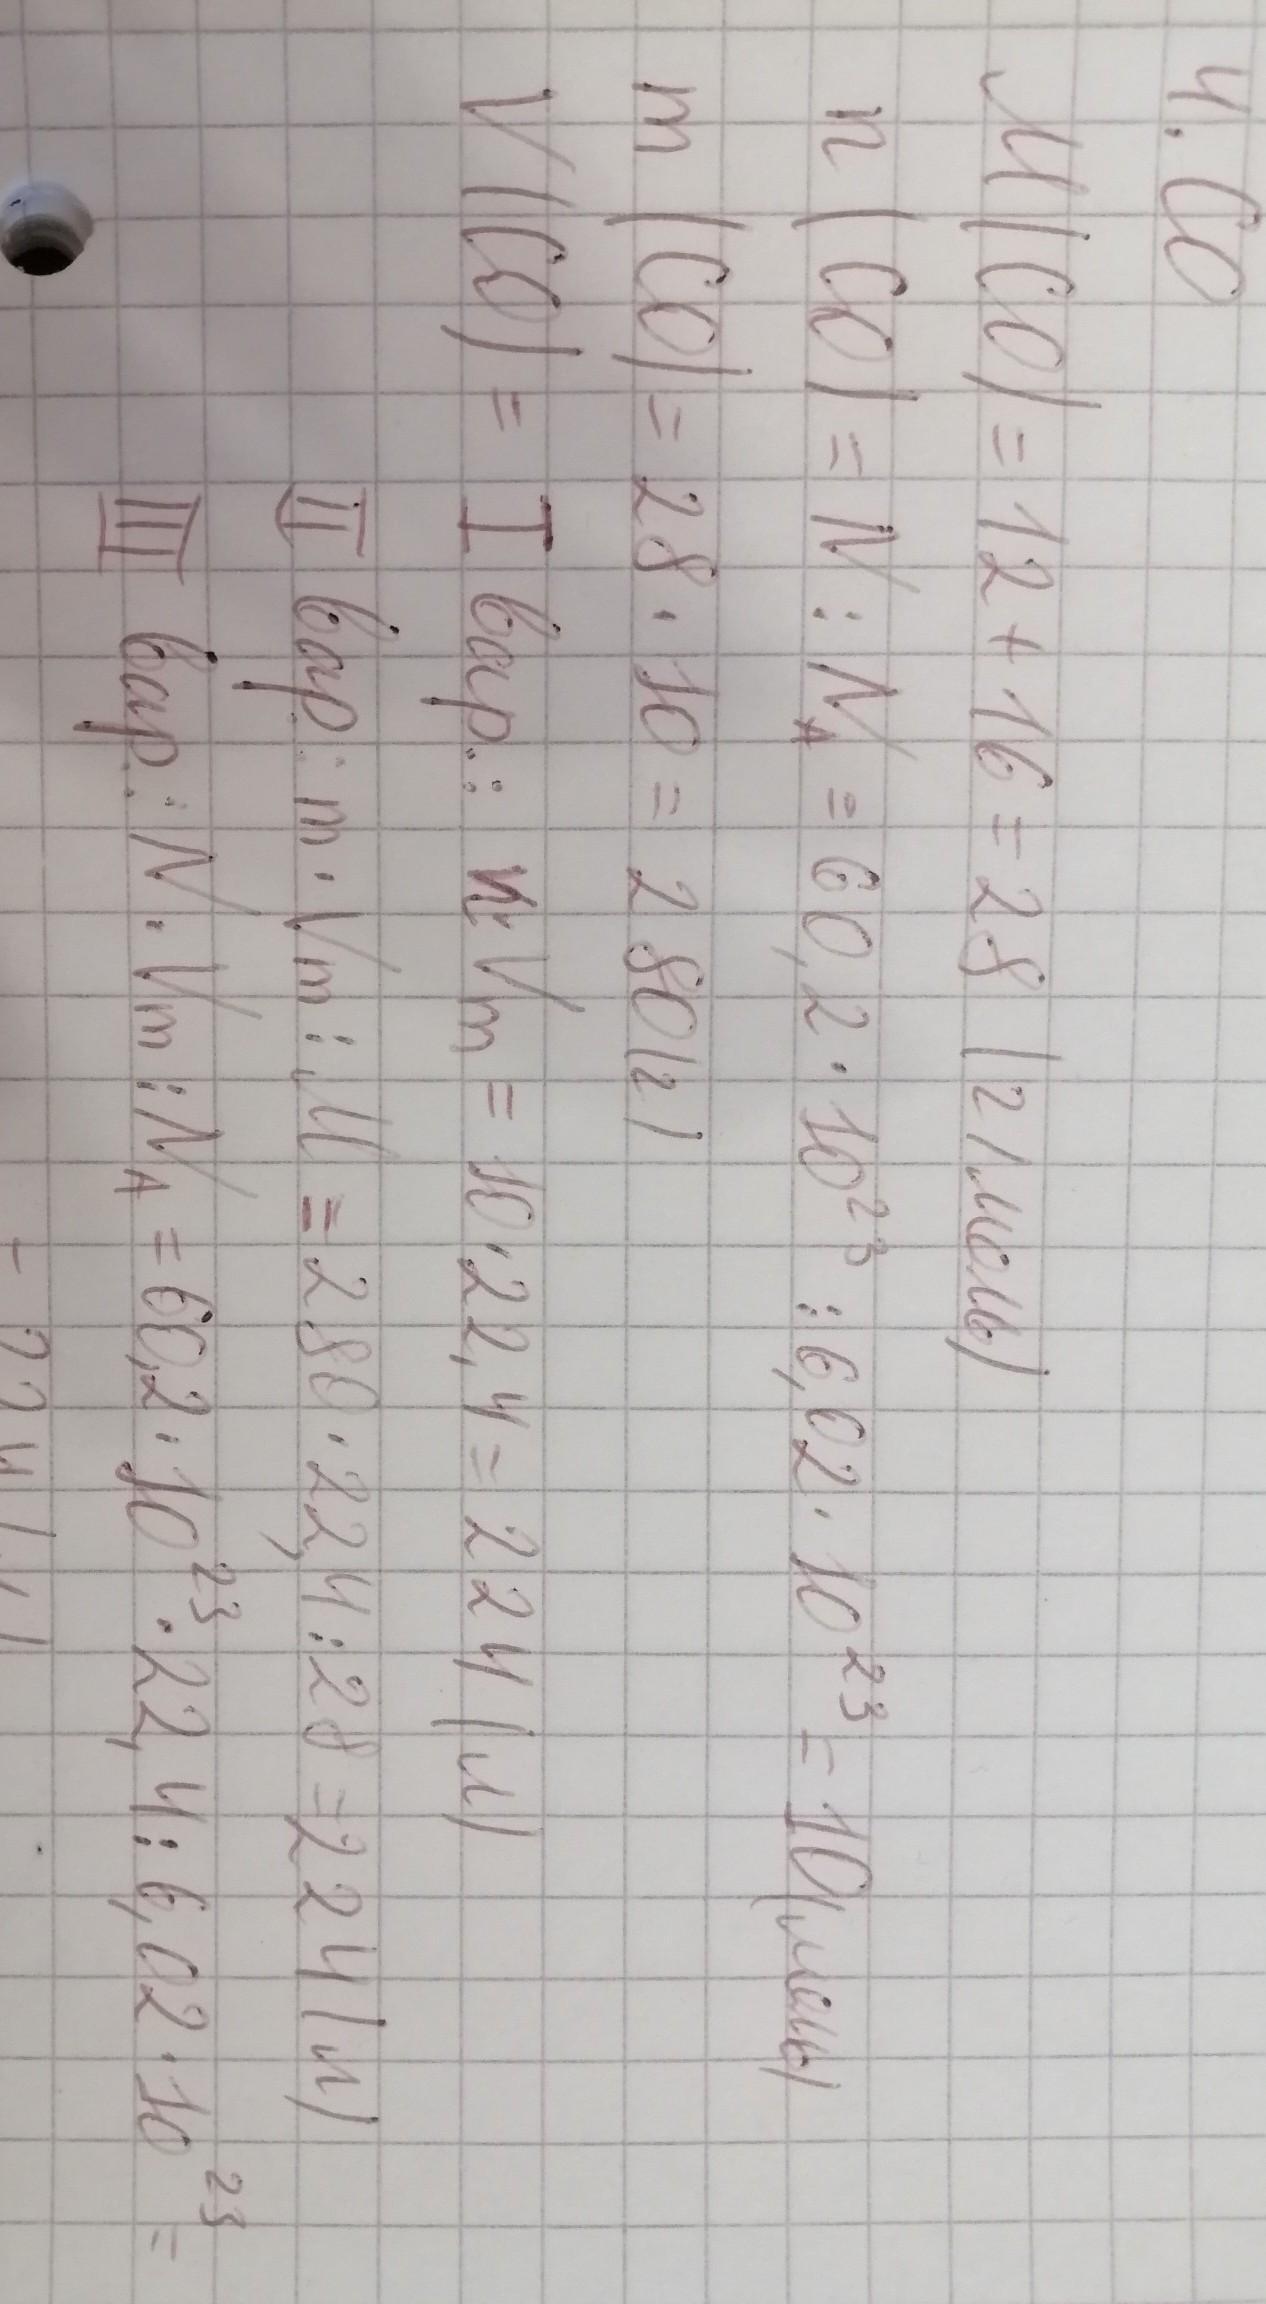 4. CO
M(CO) = 12 + 16 = 28 (г/моль)
n (CO) = N : N_A = 60,2 · 10²³ : 6,02 · 10²³ = 10(моль)
m (CO) = 28 · 10 = 280(г)
V (CO) = I вар.: n·Vm = 10·22,4 = 224 (л)
II вар.: m · Vm : M = 280 · 22,4 : 28 = 224 (л)
III вар.: N · Vm : N_A = 60,2 · 10²³ · 22,4 : 6,02 · 10²³ =
= 224 (л)